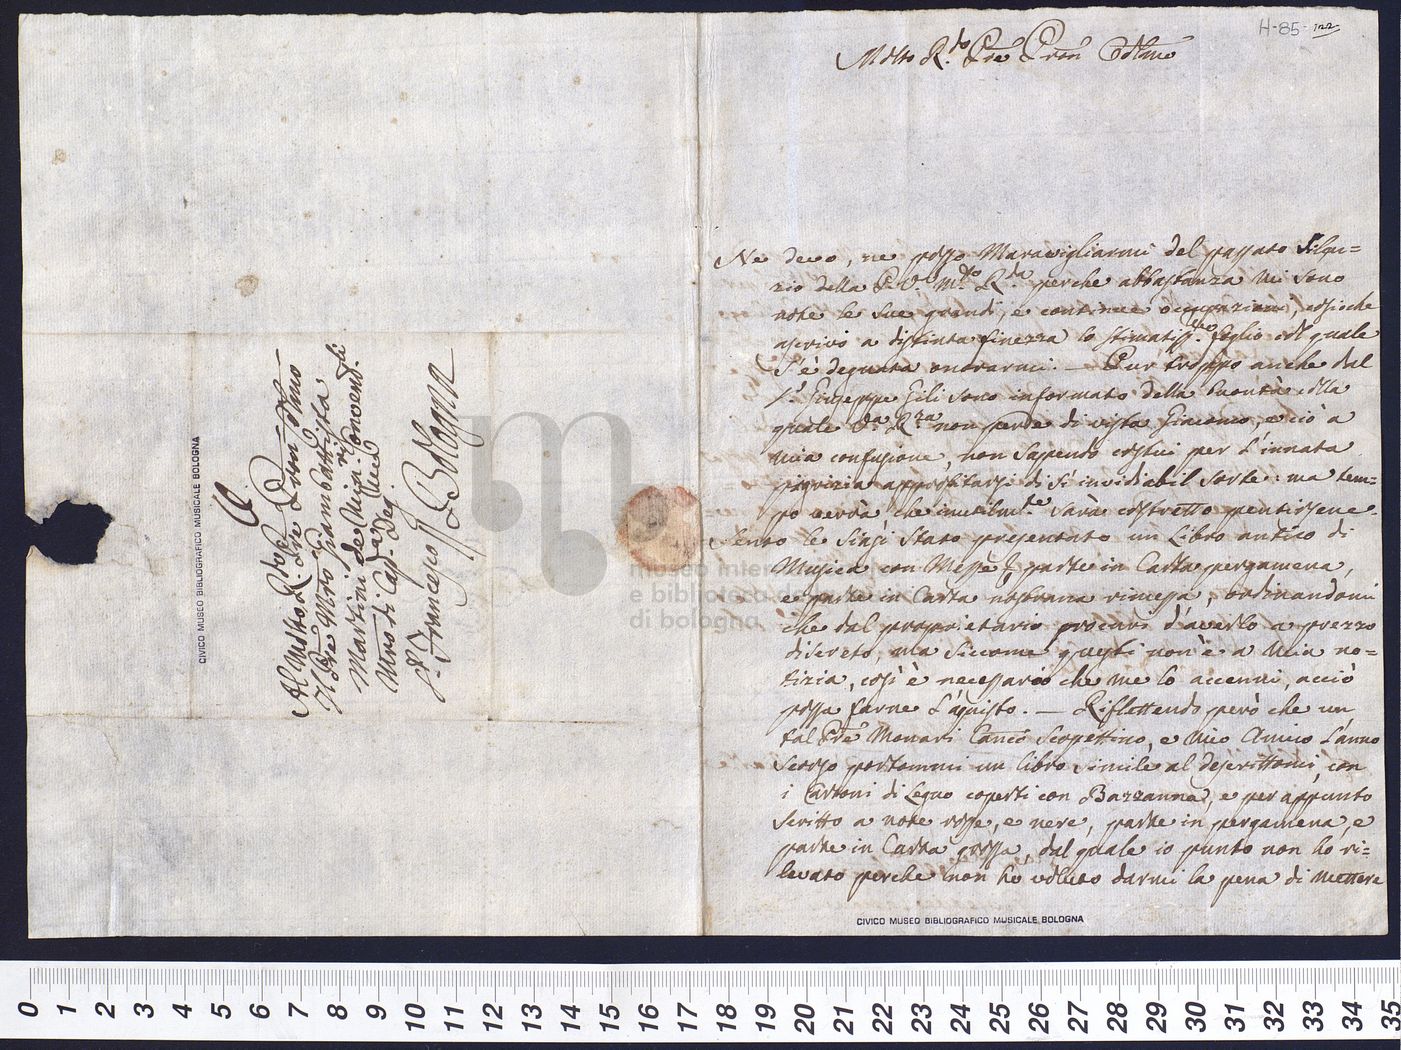 H-85-122
Molto R.do Pre Pron Colmo
Ne devo, ne posso Maravigliarmi del passato Silen=
zio della P. V. M.to R.da perche abbastanza Mi sono
note le sue grandi, e continue occupazioni, cosicche
ascrivo a distinta finezza lo stimatiss.mo foglio col quale
s'è degnata onorarmi. — Pur troppo anche dal
S.r Giuseppe Gili sono informato della buontà, colla
quale V.a R.za non perde di vista Giacomo, e ciò a
Mia confusione, non sapendo costui per l'innata
pigrizia approfitarsi di sì invidiabil sorte: ma tem=
po verrà che inutilm.te sarà costretto pentirsene.
Sento le sinsi stato presentato un Libro antico di
Musica con Messe parte in Carta pergamena,
e parte in Carta nostrana rimessa, ordinandomi
che dal proprietario procuri d'averlo a prezzo
discreto, ma siccome questi non è a Mia no=
tizia, così è necessario che me lo accenni, acciò
possa farne l'aquisto. — Riflettendo però che un
tal Pre Monari Canco Scopettino, e Mio Amico l'anno
scorso portommi un libro simile al descrittomi, con
i Cartoni di Legno coperti con Bazzanna, e per appunto
scritto a note rosse, e nere, parte in pergamena, e
parte in Carta grossa, dal quale io punto non ho ri=
levato perche non ho voluto darmi la pena di Mettere
CIVICO MUSEO BIBLIOGRAFICO MUSICALE BOLOGNA
Al Molto R.do Pre Pron Colmo
Il Pre Mro Giambattista
Martini de Minri Convent.li
Mro di Capp.a Acc.
S. Francesco
Bologna
CIVICO MUSEO BIBLIOGRAFICO MUSICALE BOLOGNA
museo inter
e biblioteca de
di bologna
0 1 2 3 4 5 6 7 8 9 10 11 12 13 14 15 16 17 18 19 20 21 22 23 24 25 26 27 28 29 30 31 32 33 34 35